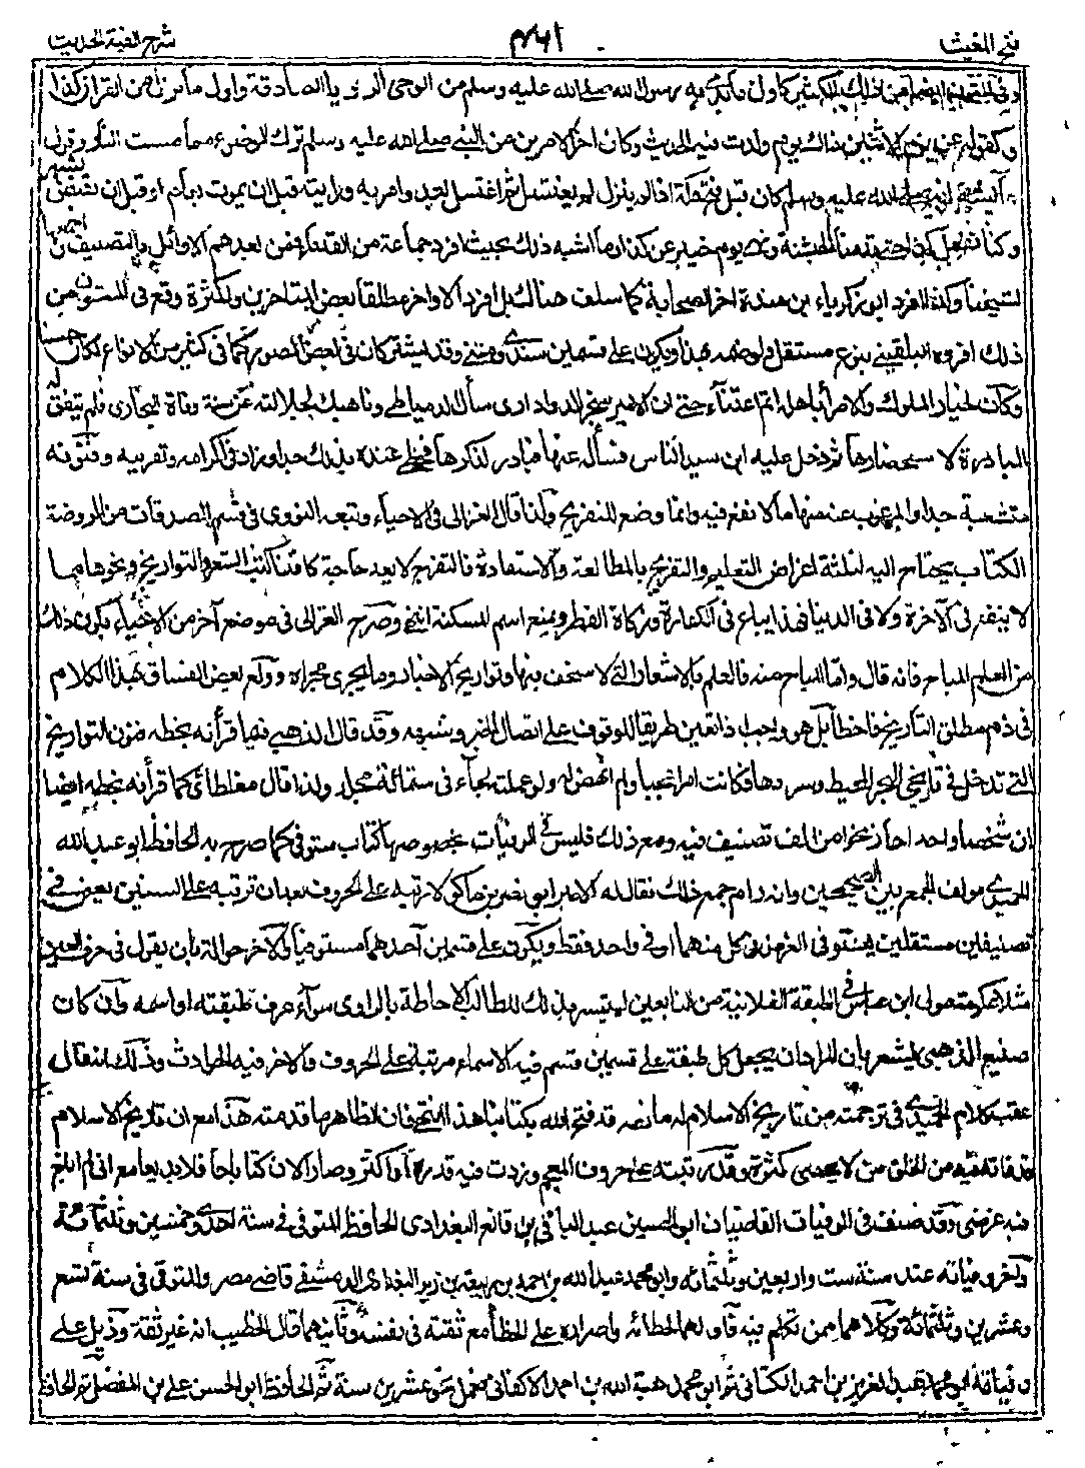 فتح المغيث
٤٦١
شرح الفية الحديث
من ذلك كاول ما بدئ به رسول الله صلى الله عليه وسلم من الوحي الرؤيا الصادقة واول ما نزل من القران كذا
وكقوله عن يوم الاثنين ذاك يوم ولدت فيه الحديث وكان اخر الامرين من النبي صلى الله عليه وسلم ترك الوضوء مما مست النار وقول
عائشة انه صلى الله عليه وسلم كان قبل فتح مكة اذا لم ينزل لم يغتسل ثم اغتسل بعد وامر به ورايته قبل ان يموت بعام او قبل ان يقبض بشهر
وكنا نفعل كذا حتى قدمنا الحبشة ونهى يوم خيبر عن كذا وما اشبه ذلك بحيث افرد جماعة من القدماء فمن بعدهم الاوائل بالتصنيف
لشيخنا وكذا افرد ابو زكرياء بن مندة اخر الصحابة كما سلف هنالك بل افرد الاواخر مطلقا بعض المتاخرين ولكثرة وقع في المتون من
ذلك افرده البلقيني بنوع مستقل فعلى هذا ويكون على قسمين سندي ومتني وقد يشتركان في بعض الصور كما في كثير من الانواع لكان حسنا
وكان لخيار الملوك والامراء باهله اتم اعتناء حتى ان الامير سنجر الدوادارى سأل الدمياطي وناهيك بجلالته عن سنة وفاة البخارى فلم يتفق له
المبادرة لاستحضارها ثم دخل عليه ابن سيد الناس فسأله عنها فبادر لذكرها فحظي عنده بذلك جدا وزاد في اكرامه وتقريبه وفنونه
متشعبة جدا والمرغوب عنه منها ما لا نفع فيه وانما وضع للتفرج ولذا قال الغزالى في الاحياء وتبعه النووى في قسم الصدقات من الروضة
الكتاب يحتاج اليه لثلثة اغراض التعليم والتفرج بالمطالعة والاستفادة فالتفرج لا يعد حاجة كاقتناء كتب الشعر والتواريخ ونحوها مما
لا ينفع فى الآخرة ولا في الدنيا فهذا يباع في الكفارة وزكاة الفطر ويمنع اسم المسكنة انتهى وصرح الغزالى في موضع آخر من الاحياء بكون ذلك
من العلم المباح فانه قال واما المباح منه فالعلم بالاشعار التي لا سخف فيها وتواريخ الاخبار وما يجرى مجراه وولع بعض الفساق بهذا الكلام
في ذم مطلق التأريخ فاخطأ بل هو واجب اذا تعين طريقا للوقوف على اتصال الخبر وشبهه وقد قال الذهبي فيما قرأته بخطه فنون التواريخ
التي تدخل في تأريخي الكبير المحيط وسردها فكانت امرا عجبا ولم انهض له ولو عملته لجاء في ستمائة مجلد ولذا قال مغلطائ كما قرأته بخطه ايضا
ان شخصا واحدا حاز نحوا من الف تصنيف فيه ومع ذلك فليس في الوفيات بخصوصها كتاب مستوفى كما صرح به الحافظ ابو عبد الله
الحميدي مؤلف الجمع بين الصحيحين وانه رام جمع ذلك فقال له الامير ابو نصر بن ماكولا رتبه على الحروف بعد ان ترتبه على السنين يعني في
تصنيفين مستقلين يستوفى الغرض في كل منهما او في واحد فقط ويكون على قسمين احدهما مستوفيا والآخر حوالة بان يقول في حرف العين
مثلا عكرمة مولى ابن عباس في الطبقة الفلانية من التابعين ليتيسر بذلك للطالب الاحاطة بالراوى سواء عرف طبقته او اسمه وان كان
صنيع الذهبي مشعر بان المراد ان يجعل كل طبقة على قسمين قسم فيه الاسماء مرتبة على الحروف والآخر فيه الحوادث وذلك انه قال
عقب كلام الحميدي في ترجمته من تاريخ الاسلام له ما نصه قد فتح الله بكتابنا هذا انتهى فان الظاهر ما قدمته هذا مع ان تاريخ الاسلام
قد فاته فيه من الخلق من لا يحصى كثرة وقد رتبته على حروف المعجم وزدت فيه قدره او اكثر وصار الان كتابا حافلا بديعا مع اني لم ابلغ
فيه غرضي وقد صنف في الوفيات القاضيان ابو الحسين عبد الباقي بن قانع البغدادى الحافظ المتوفى في سنة احدى وخمسين وثلثمائة
وآخر وفياته عند سنة ست واربعين وثلثمائة وابو محمد عبد الله بن احمد بن ربيعة بن زبر البغدادى الدمشقي قاضي مصر والمتوفى في سنة تسع
وعشرين وثلثمائة وكلاهما ممن تكلم فيه فاولهما لخطائه واصراره على الخطأ مع ثقته في نفسه وثانيهما قال الخطيب انه غير ثقة وذيل على
وفياته ابو محمد عبد العزيز بن احمد الكتاني ثم ابو محمد هبة الله بن احمد الاكفاني فعمل نحو عشرين سنة ثم الحافظ ابو الحسن علي بن المفضل ثم الحافظ